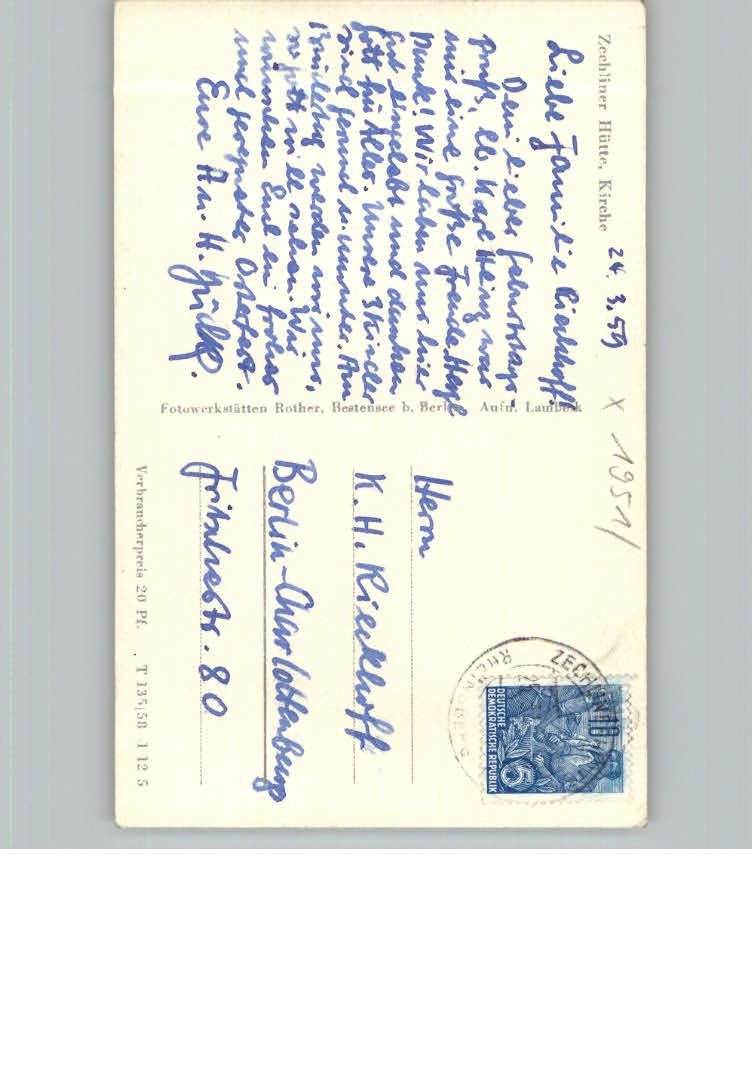 Zechliner Hütte, Kirche
24. 3. 59
Liebe Familie Rieckhoff!
Dein lieber Geburtstags-
gruß, lb. Karl Heinz war
uns eine große Freude. Hzgl
Dank! Wir haben uns hier
gut eingelebt und danken
Gott für Alles. Unsere 3 Kinder
sind gesund u. munter. Am
werden wir uns,
so Gott will sehen. Wir
wünschen Euch ein frohes
und gesegnetes Osterfest.
Eure A. u. H.
Fotowerkstätten Rother, Bestensee b. Berlin Aufn.
x 1951/
Herrn
K. H. Rieckhoff
Berlin-Charlottenburg
Fritschestr. 80
Verbraucherpreis 20 Pf. T 135/58 1 12 5
ZECHLINER HÜTTE
RHEINSBERG
DEUTSCHE
DEMOKRATISCHE REPUBLIK
5
10